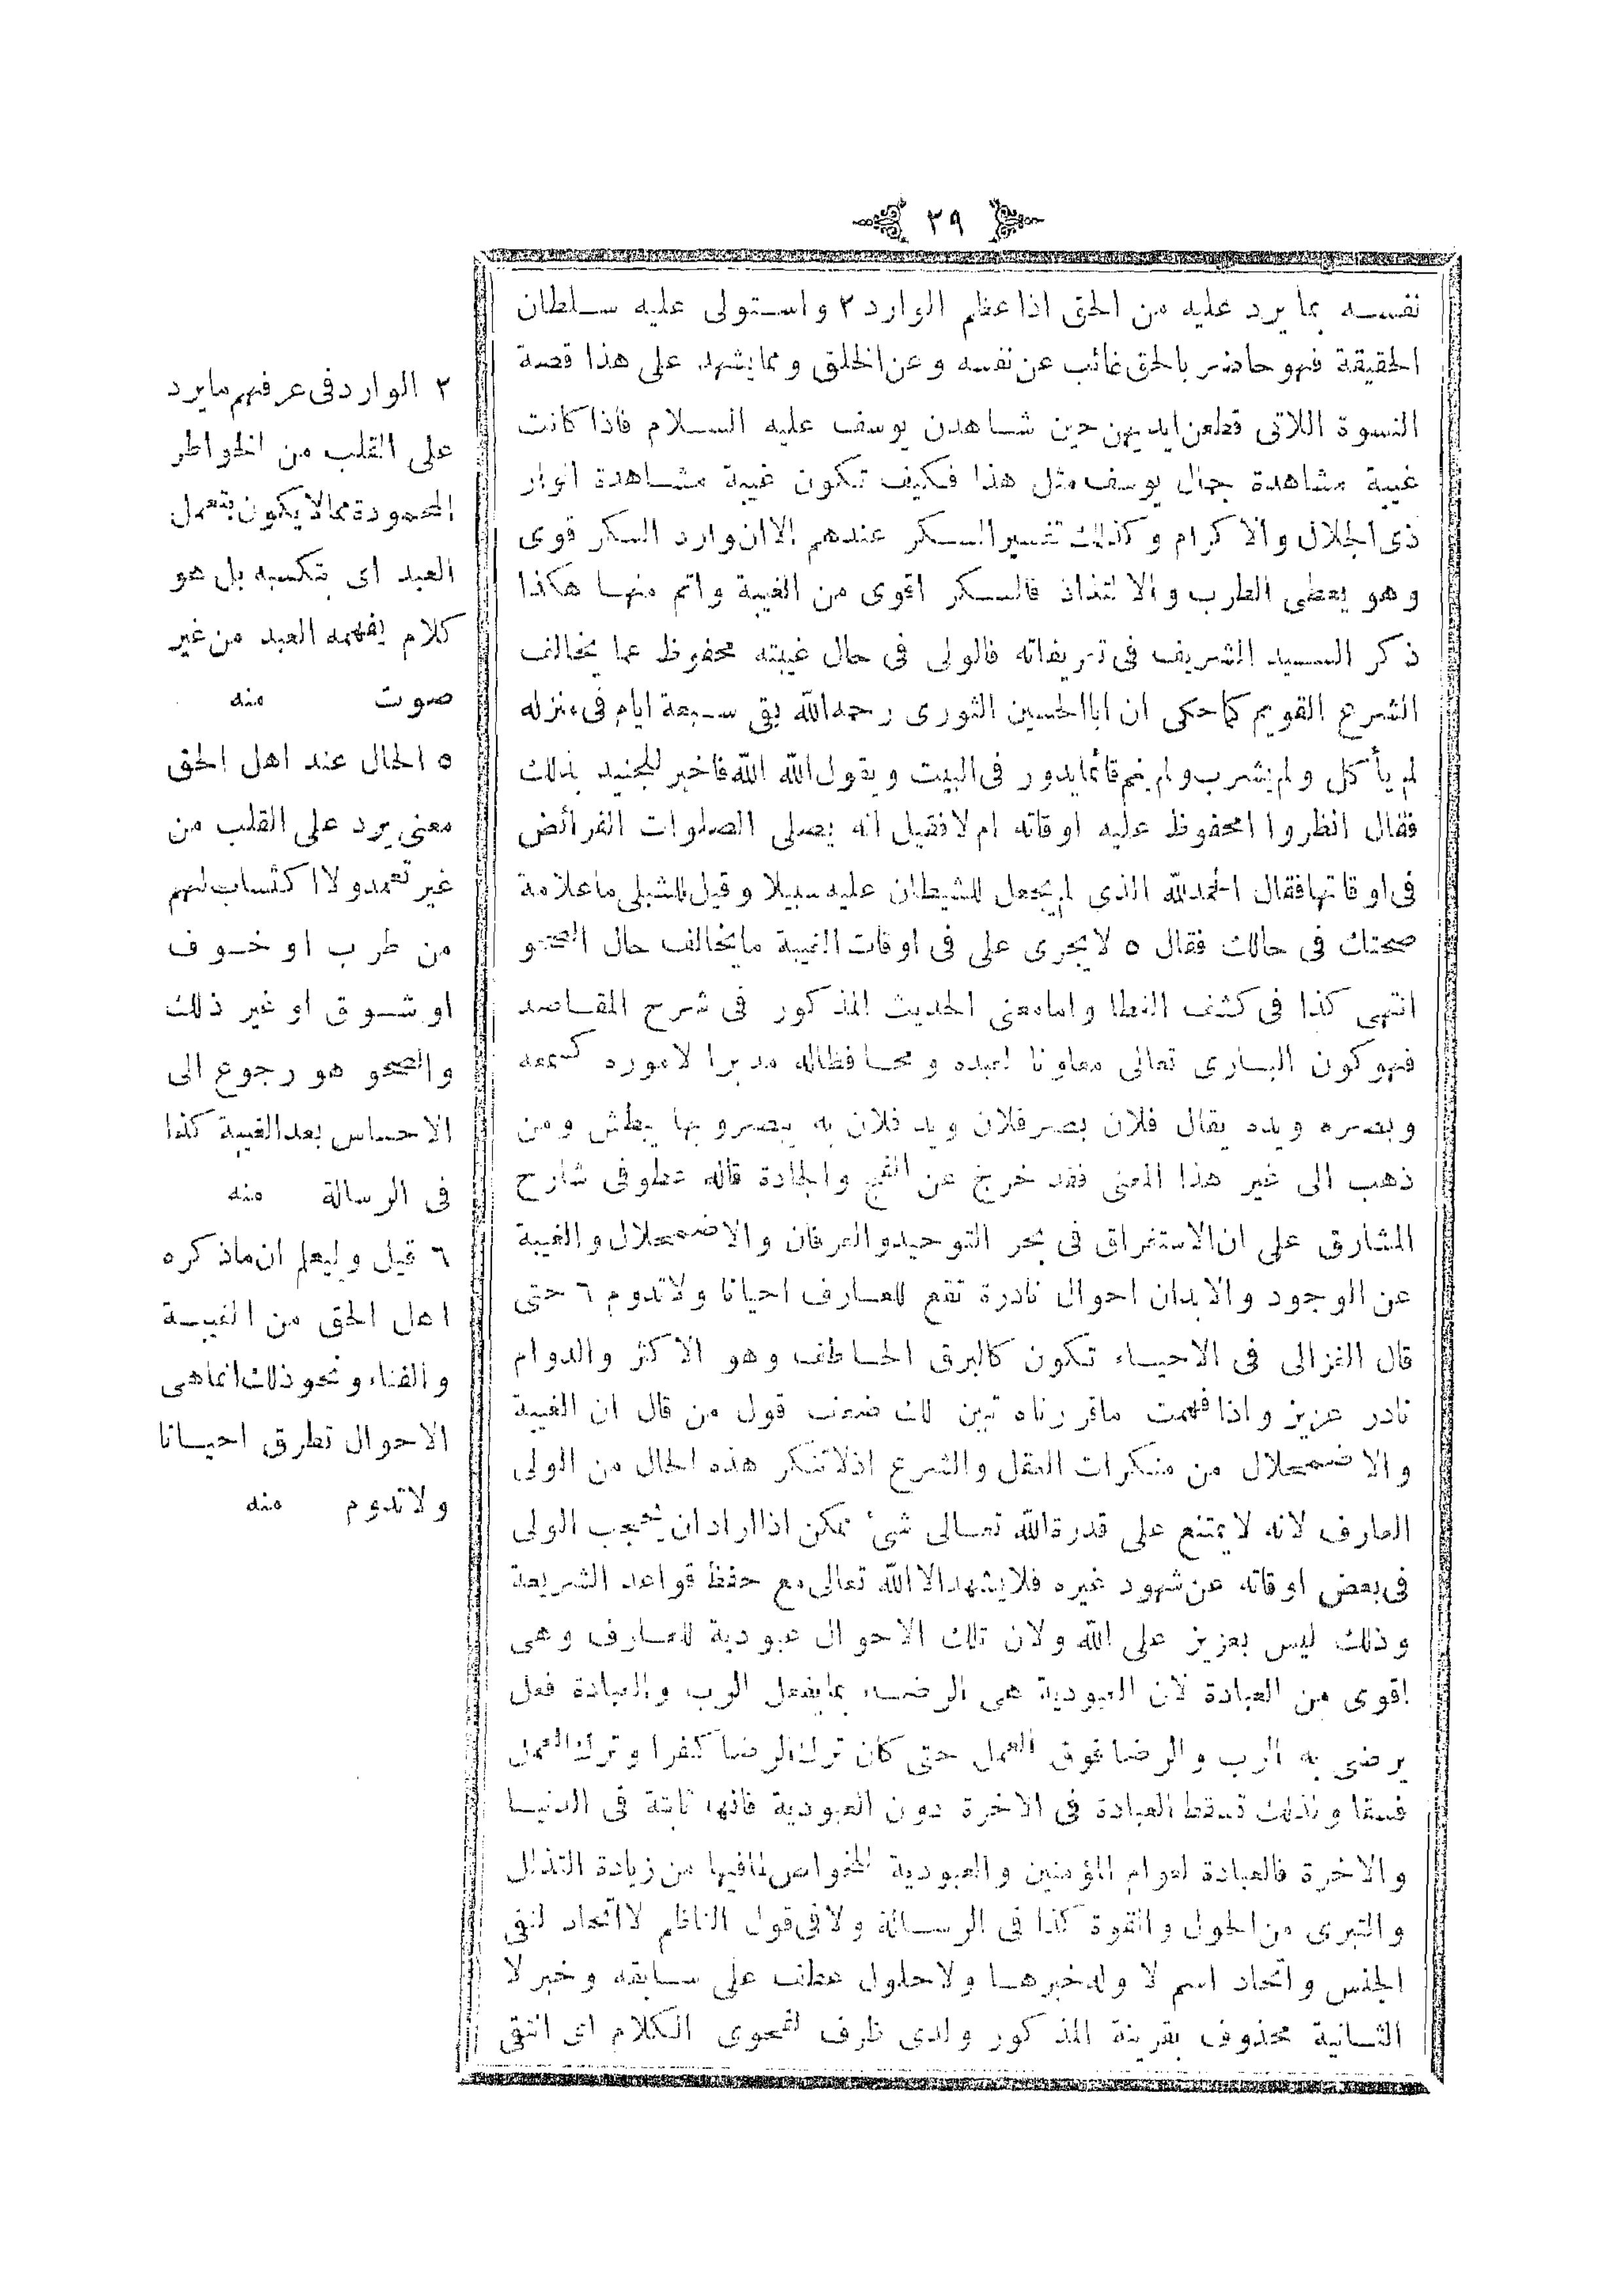 ٣٩
نفسه بما يرد عليه من الحق اذا عظم الوارد ٢ واستولى عليه سلطان
الحقيقة فهو حاضر بالحق غائب عن نفسه وعن الخلق ومما يشهد على هذا قصة
النسوة اللاتى قطعن ايديهن حين شاهدن يوسف عليه السلام فاذا كانت
غيبة مشاهدة جمال يوسف مثل هذا فكيف تكون غيبة مشاهدة انوار
ذى الجلال والاكرام وكذلك تفسير السكر عندهم الا ان وارد السكر قوى
وهو يعطى الطرب والالتذاذ فالسكر اقوى من الغيبة واتم منها هكذا
ذكر السيد الشريف فى تعريفاته فالولى فى حال غيبته محفوظ عما يخالف
الشرع القويم كما حكى ان ابا الحسين النورى رحمه الله بقى سبعة ايام فى منزله
لم يأكل ولم يشرب ولم ينم قائما يدور فى البيت ويقول الله الله فاخبر للجنيد بذلك
فقال انظروا امحفوظ عليه اوقاته ام لا فقيل انه يصلى الصلوات الفرائض
فى اوقاتها فقال الحمد لله الذى لم يجعل للشيطان عليه سبيلا وقيل للشبلى ما علامة
صحتك فى حالك فقال ٥ لا يجرى على فى اوقات الغيبة ما يخالف حال الصحو
انتهى كذا فى كشف الغطا واما معنى الحديث المذكور فى شرح المقاصد
فهو كون البارى تعالى معاونا لعبده ومحافظا له مدبرا لاموره كسمعه
وبصره ويده يقال فلان بصر فلان ويد فلان به يبصر وبها يبطش ومن
ذهب الى غير هذا المعنى فقد خرج عن النهج والجادة قاله عطوفى شارح
المشارق على ان الاستغراق فى بحر التوحيد والعرفان والاضمحلال والغيبة
عن الوجود والابدان احوال نادرة تقع للعارف احيانا ولا تدوم ٦ حتى
قال الغزالى فى الاحياء تكون كالبرق الخاطف وهو الاكثر والدوام
نادر عزيز واذا فهمت ما قررناه تبين لك ضعف قول من قال ان الغيبة
والاضمحلال من منكرات العقل والشرع اذ لا تنكر هذه الحال من الولى
العارف لانه لا يمتنع على قدرة الله تعالى شئ ممكن اذا اراد ان يحجب الولى
فى بعض اوقاته عن شهود غيره فلا يشهد الا الله تعالى مع حفظ قواعد الشريعة
وذلك ليس بعزيز على الله ولان تلك الاحوال عبودية للعارف وهى
اقوى من العبادة لان العبودية هى الرضاء بما يفعل الرب والعبادة فعل
يرضى به الرب والرضا فوق العمل حتى كان ترك الرضا كفرا وترك العمل
فسقا ولذلك تسقط العبادة فى الاخرة دون العبودية فانها ثابتة فى الدنيا
والاخرة فالعبادة لعوام المؤمنين والعبودية للخواص لما فيها من زيادة التذلل
والتبرى من الحول والقوة كذا فى الرسالة ولا فى قول الناظم لا اتحاد لنفى
الجنس واتحاد اسم لا وله خبرها ولا حلول عطف على سابقه وخبر لا
الثانية محذوف بقرينة المذكور ولدى ظرف لفحوى الكلام اى انتفى
٢ الوارد فى عرفهم ما يرد
على القلب من الخواطر
المحمودة مما لا يكون بتعمل
العبد اى بتكسبه بل هو
كلام يفهمه العبد من غير
صوت منه
٥ الحال عند اهل الحق
معنى يرد على القلب من
غير تعمد ولا اكتساب لهم
من طرب او خوف
او شوق او غير ذلك
والصحو هو رجوع الى
الاحساس بعد الغيبة كذا
فى الرسالة منه
٦ قيل وليعلم ان ما ذكره
اهل الحق من الغيبة
والفناء ونحو ذلك انما هى
الاحوال تطرق احيانا
ولا تدوم منه